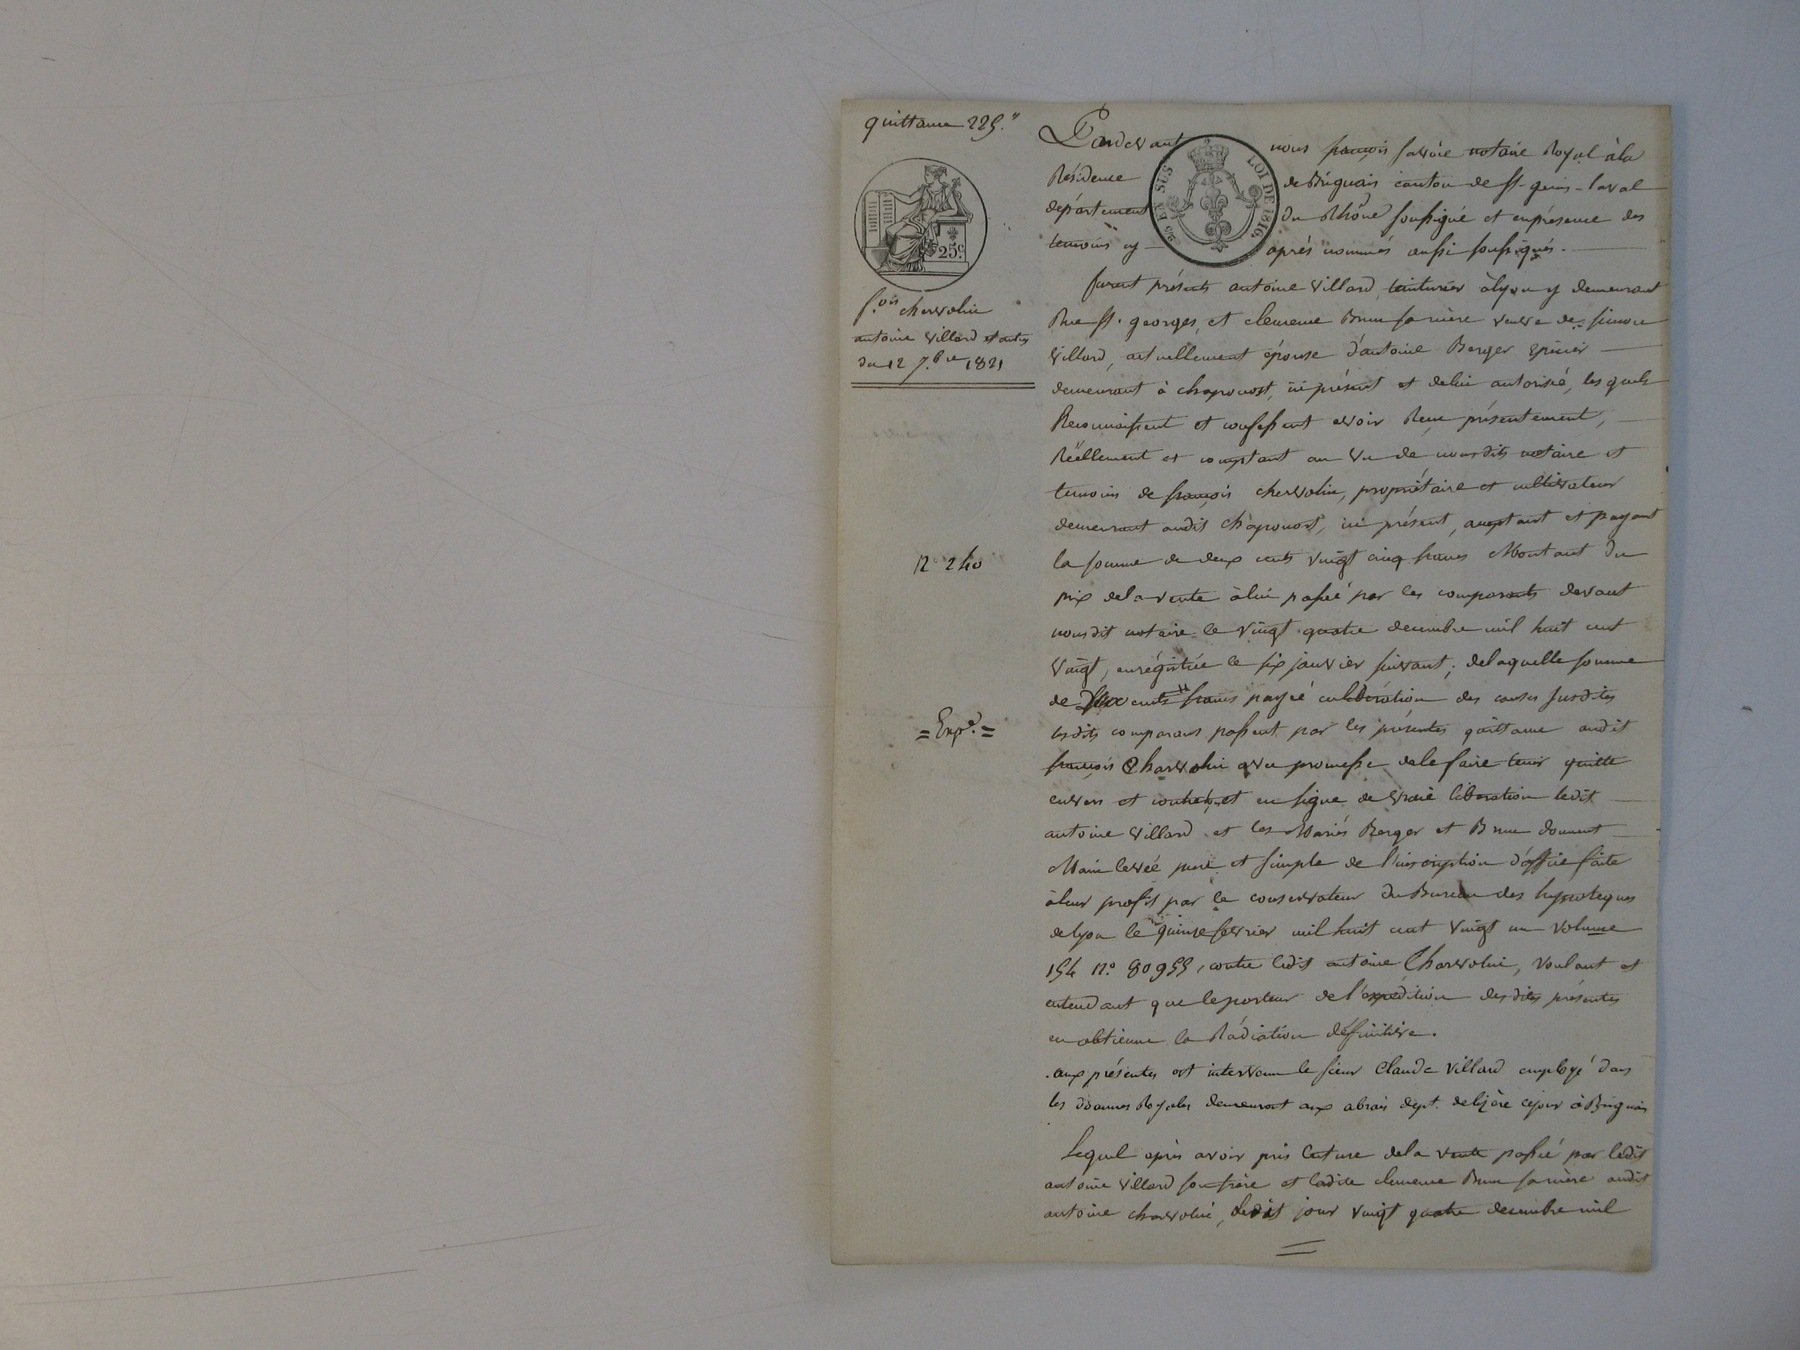 quittance 225."
25.c
f.ois chervolin
antoine Villard et autres
du 12 7.bre 1821
N.° 240
= Exp.on =
EN SUS
LOI DE 1816
Pardevant nous françois savoie notaire Royal à la
Résidence de Brignais canton de St-genis-laval
département du Rhône soussigné et en présence des
temoins cy après nommés aussi soussignés.
furent présents antoine Villard, teinturier à lyon y demeurant
Rue St. georges, et clemence Brun sa mère veuve de simon
Villard, actuellement épouse d'antoine Berger epicier
demeurant à chaponost, ici présent et de lui autorisée, les quels
Reconnaissent et confessent avoir Reçu présentement,
Réellement et comptant au Vu de nousdits notaire et
temoins de françois chervolin, propriétaire et cultivateur
demeurant audit chaponost, ici présent, acceptant et payant
la somme de deux cents vingt cinq francs Montant du
prix de la vente à lui passée par les comparants devant
nousdit notaire le vingt quatre decembre mil huit cent
vingt, enrégistrée le six janvier suivant; de laquelle somme
de Deux cents francs payée en libération des causes susdites
lesdits comparans passent par les présentes quittance audit
françois Charvolin avec promesse de le faire tenir quitte
envers et contre et en signe de vraie libération ledit
antoine Villard et les Mariés Berger et Brun donnent
Main levée pure et simple de l'inscription d'office faite
à leur profit par le conservateur du Bureau des hypoteques
de lyon le quinze fevrier mil huit cent vingt un volume
154 N.° 80955, contre ledit antoine Charvolin, voulant et
entendant que le porteur de l'expédition desdites présentes
en obtienne la Radiation définitive.
aux présentes est intervenu le sieur Claude Villard employé dans
les douanes Royales demeurant aux abrais dept. de lizère ce jour à Brignais
Lequel après avoir pris lecture de la vente passée par ledit
antoine Villard son frère et ladite clemence Brun sa mère audit
antoine charvolin, ledit jour vingt quatre decembre mil